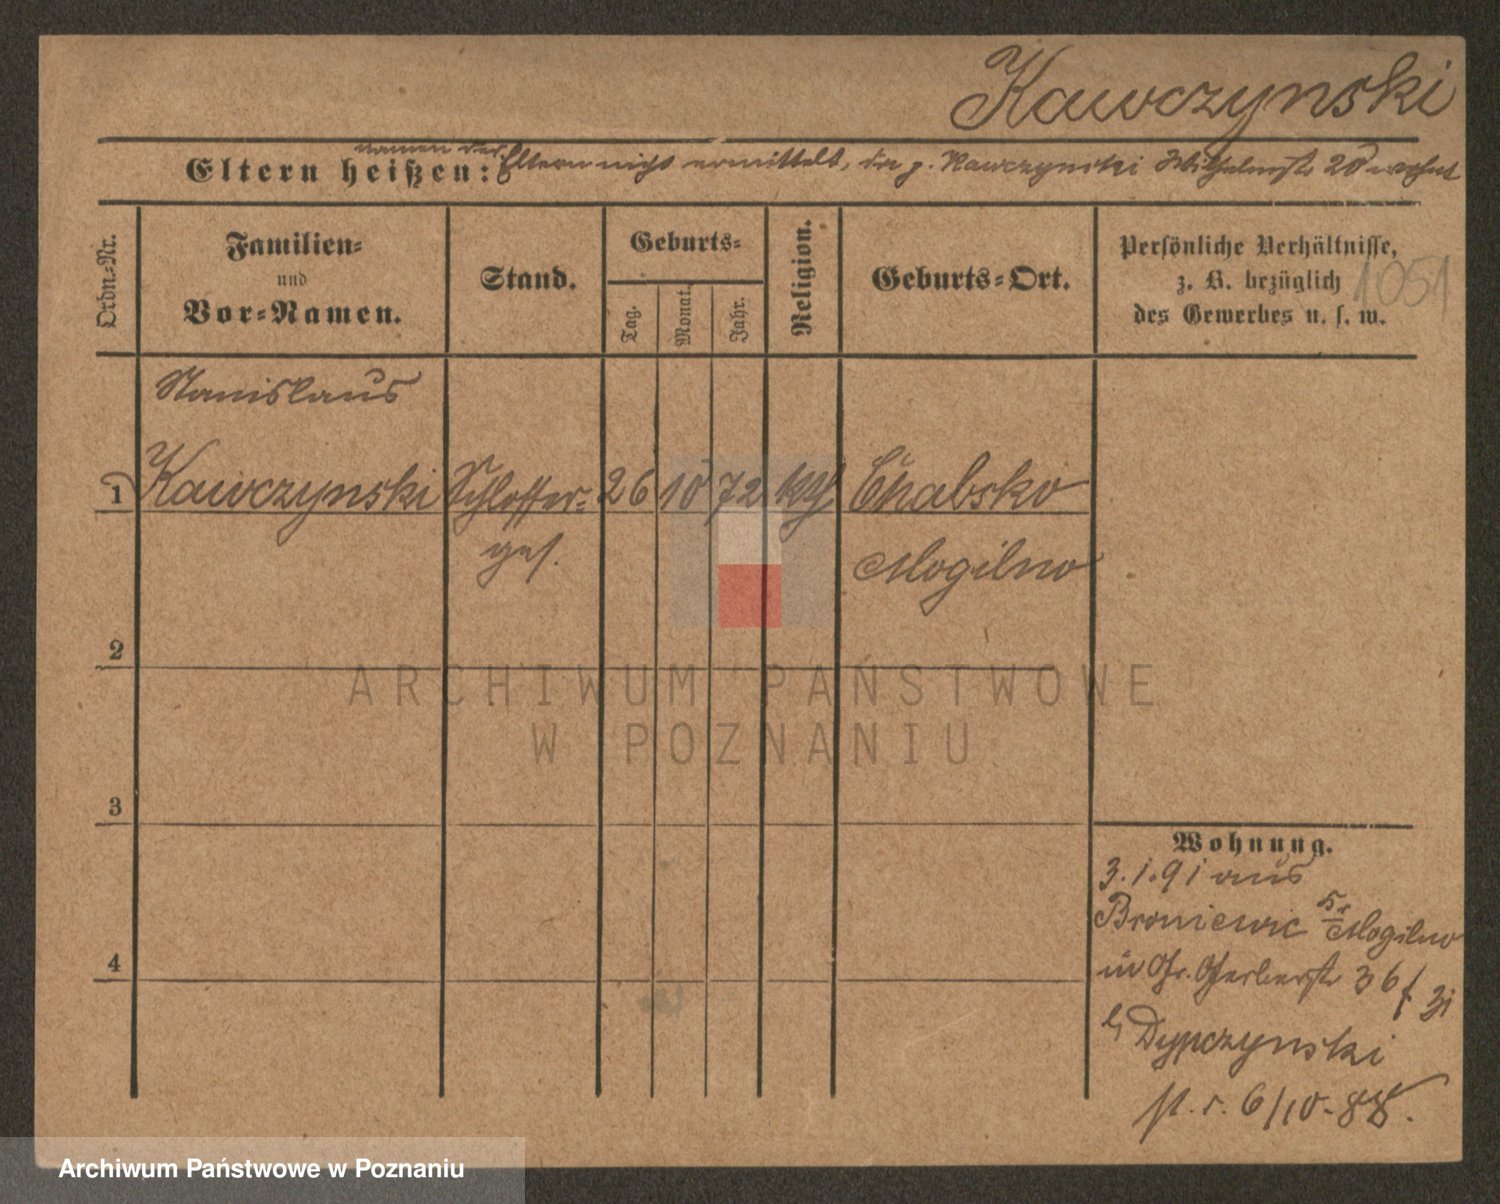 Kawczynski
namen der
Eltern heißen: Eltern nicht ermittelt, da p. Kawczynski Wilhelmstr 20 wohnt
Ordn.-Nr.
Familien-
und
Vor-Namen.
Stand.
Geburts-
Tag.
Monat.
Jahr.
Religion.
Geburts-Ort.
Persönliche Verhältnisse,
z. B. bezüglich
des Gewerbes u. s. w.
1051
Stanislaus
1 Kawczynski Schlosser- 26 10 72 kth Chabsko
ges. Mogilno
2
3
4
Wohnung.
3.1.91 aus
Broniewic Kr Mogilno
in Gr. Gerberstr 36
b/ Dypczynski
6/10.88.
ARCHIWUM PAŃSTWOWE
W POZNANIU
Archiwum Państwowe w Poznaniu